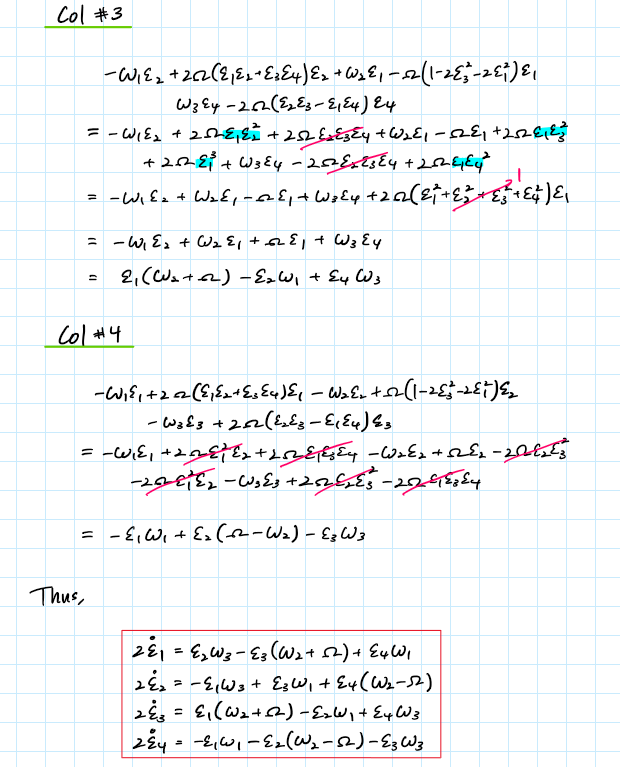 Col #3
-ω₁ε₂ + 2Ω(ε₁ε₂+ε₃ε₄)ε₂ + ω₂ε₁ - Ω(1-2ε₃²-2ε₁²)ε₁
ω₃ε₄ - 2Ω(ε₂ε₃ - ε₁ε₄)ε₄
= -ω₁ε₂ + 2Ωε₁ε₂² + 2Ωε₂ε₃ε₄ + ω₂ε₁ - Ωε₁ + 2Ωε₁ε₃²
+ 2Ωε₁³ + ω₃ε₄ - 2Ωε₂ε₃ε₄ + 2Ωε₁ε₄²
= -ω₁ε₂ + ω₂ε₁ - Ωε₁ + ω₃ε₄ + 2Ω(ε₁²+ε₂²+ε₃²+ε₄²)ε₁ 1
= -ω₁ε₂ + ω₂ε₁ + Ωε₁ + ω₃ε₄
= ε₁(ω₂+Ω) - ε₂ω₁ + ε₄ω₃
Col #4
-ω₁ε₁ + 2Ω(ε₁ε₂+ε₃ε₄)ε₁ - ω₂ε₂ + Ω(1-2ε₃²-2ε₁²)ε₂
- ω₃ε₃ + 2Ω(ε₂ε₃ - ε₁ε₄)ε₃
= -ω₁ε₁ + 2Ωε₁²ε₂ + 2Ωε₁ε₃ε₄ - ω₂ε₂ + Ωε₂ - 2Ωε₂ε₃²
- 2Ωε₁²ε₂ - ω₃ε₃ + 2Ωε₂ε₃² - 2Ωε₁ε₃ε₄
= -ε₁ω₁ + ε₂(Ω-ω₂) - ε₃ω₃
Thus,
2ε̇₁ = ε₂ω₃ - ε₃(ω₂+Ω) + ε₄ω₁
2ε̇₂ = -ε₁ω₃ + ε₃ω₁ + ε₄(ω₂-Ω)
2ε̇₃ = ε₁(ω₂+Ω) - ε₂ω₁ + ε₄ω₃
2ε̇₄ = -ε₁ω₁ - ε₂(ω₂-Ω) - ε₃ω₃